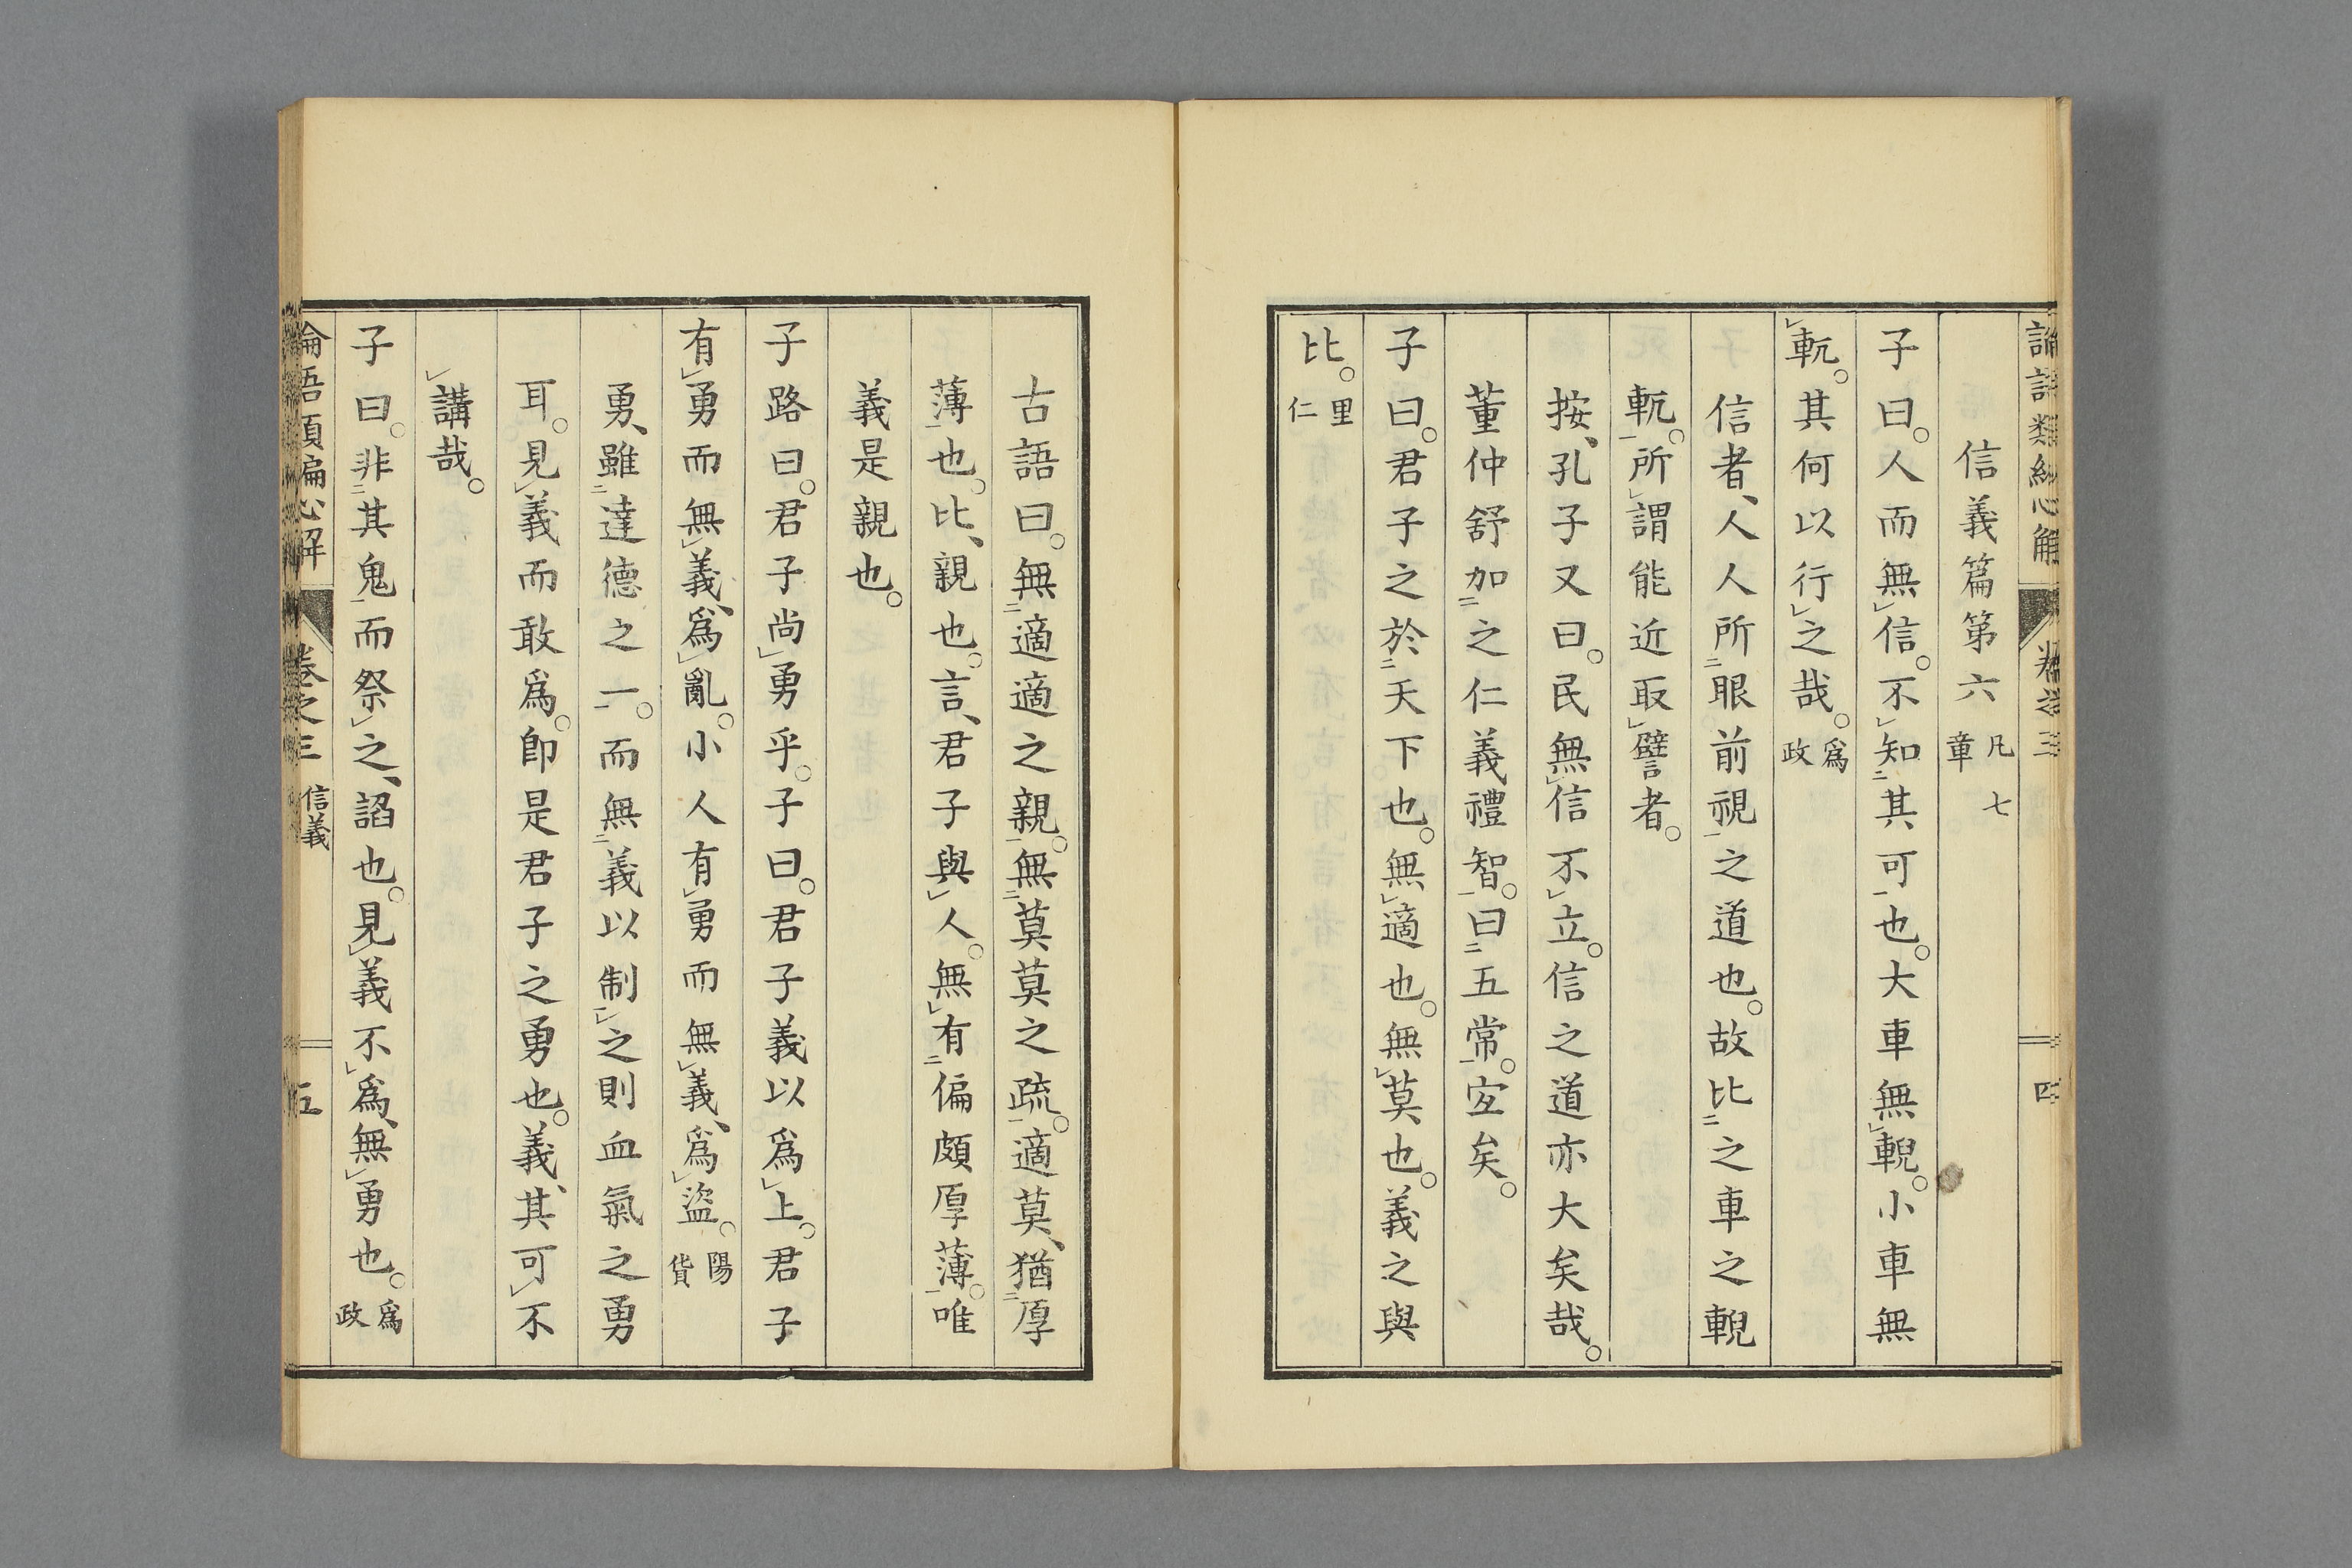 論語類編心解 卷之三 四
信義篇第六 凡七章
子曰。人而無信。不知其可也。大車無輗。小車無
軏。其何以行之哉。爲政
信者、人人所眼前視之道也。故比之車之輗
軏。所謂能近取譬者。
按、孔子又曰。民無信不立。信之道亦大矣哉。
董仲舒加之仁義禮智。曰五常。宐矣。
子曰。君子之於天下也。無適也。無莫也。義之與
比。里仁
古語曰。無適適之親。無莫莫之疏。適莫、猶厚
薄也。比、親也。言、君子與人。無有偏頗厚薄。唯
義是親也。
子路曰。君子尚勇乎。子曰。君子義以爲上。君子
有勇而無義、爲亂。小人有勇而無義、爲盜。陽貨
勇、雖達德之一。而無義以制之則血氣之勇
耳。見義而敢爲。卽是君子之勇也。義、其可不
講哉。
子曰。非其鬼而祭之、諂也。見義不爲、無勇也。爲政
論語類編心解 卷之三 信義 五